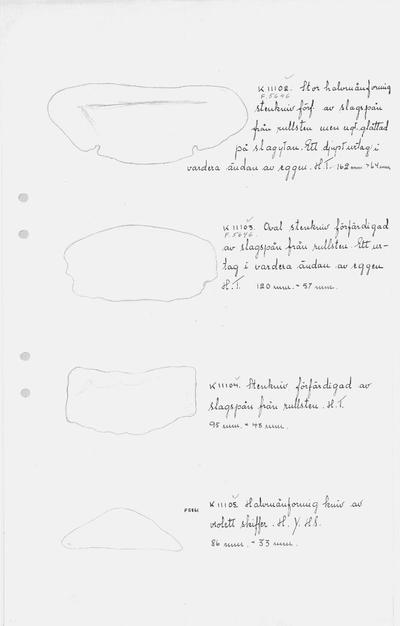 K 11102. Stor halvmånformig
F.5646
stenkniv förf. av slagspån
från rullsten men något glättad
på slagytan. Ett djupt urtag i
vardera ändan av eggen. H.T. 162 mm × 64 mm
K 11103. Oval stenkniv förfärdigad
F.5646.
av slagspån från rullsten. Ett ur-
tag i vardera ändan av eggen
H.T. 120 mm. × 57 mm.
K 11104. Stenkniv förfärdigad av
slagspån från rullsten. H.T.
95 mm. × 48 mm.
K 11105. Halvmånformig kniv av
violett skiffer. H. Y. HS.
86 mm. × 33 mm.